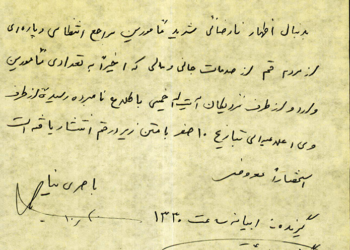 بدنبال اظهار نارضائی شدید مأمورین مراجع انتظامی و پاره‌ای
از مردم قم از صدمات جانی و مالی که اخیراً به تعدادی مأمورین
وارد و از طرف نزدیکان آیت‌اله خمینی باطلاع نامبرده رسیده از طرف
وی اعلامیه‌ای بتاریخ ۱۰ صفر با متن زیر در قم انتشار یافته است
استحضاراً معروض
باصری نیا
گیرنده ساعت ۱۳۳۰